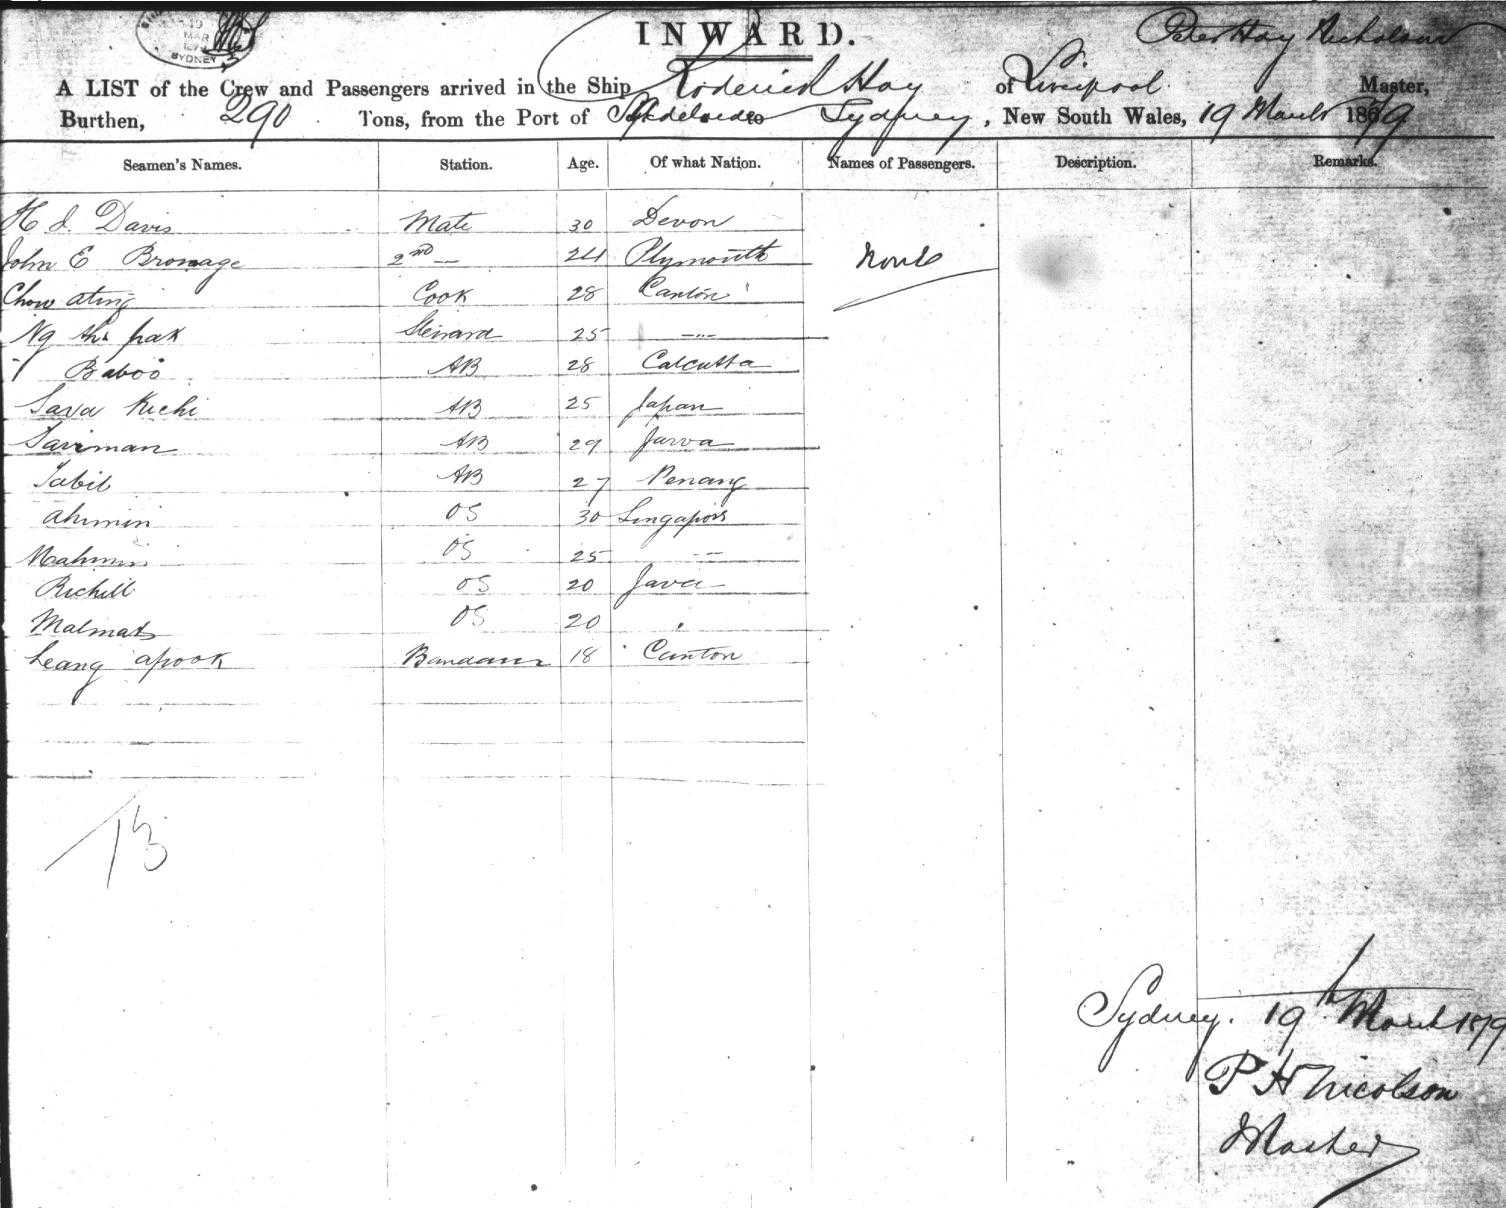 19
MAR
SYDNEY
INWARD.
Peter Hay Nicholson
A LIST of the Crew and Passengers arrived in the Ship Roderick Hay of Liverpool Master,
Burthen, 290 Tons, from the Port of Adelaide to Sydney, New South Wales, 19 March 1879
Seamen's Names. Station. Age. Of what Nation. Names of Passengers. Description. Remarks.
H J. Davis Mate 30 Devon
John E Bromage 2nd — 24 Plymouth None
Chow ating Cook 28 Canton
Ng thi pak Steward 25 —"—
Baboo AB 28 Calcutta
Sava Kichi AB 25 Japan
Sariman AB 29 Jarva
Tabil AB 27 Penang
Ahimin OS 30 Singapore
Mahmin OS 25 —"—
Richill OS 20 Java
Malmat OS 20 "
Leang apook 18 Canton
13
Sydney. 19th March 1879
P H Nicolson
Master